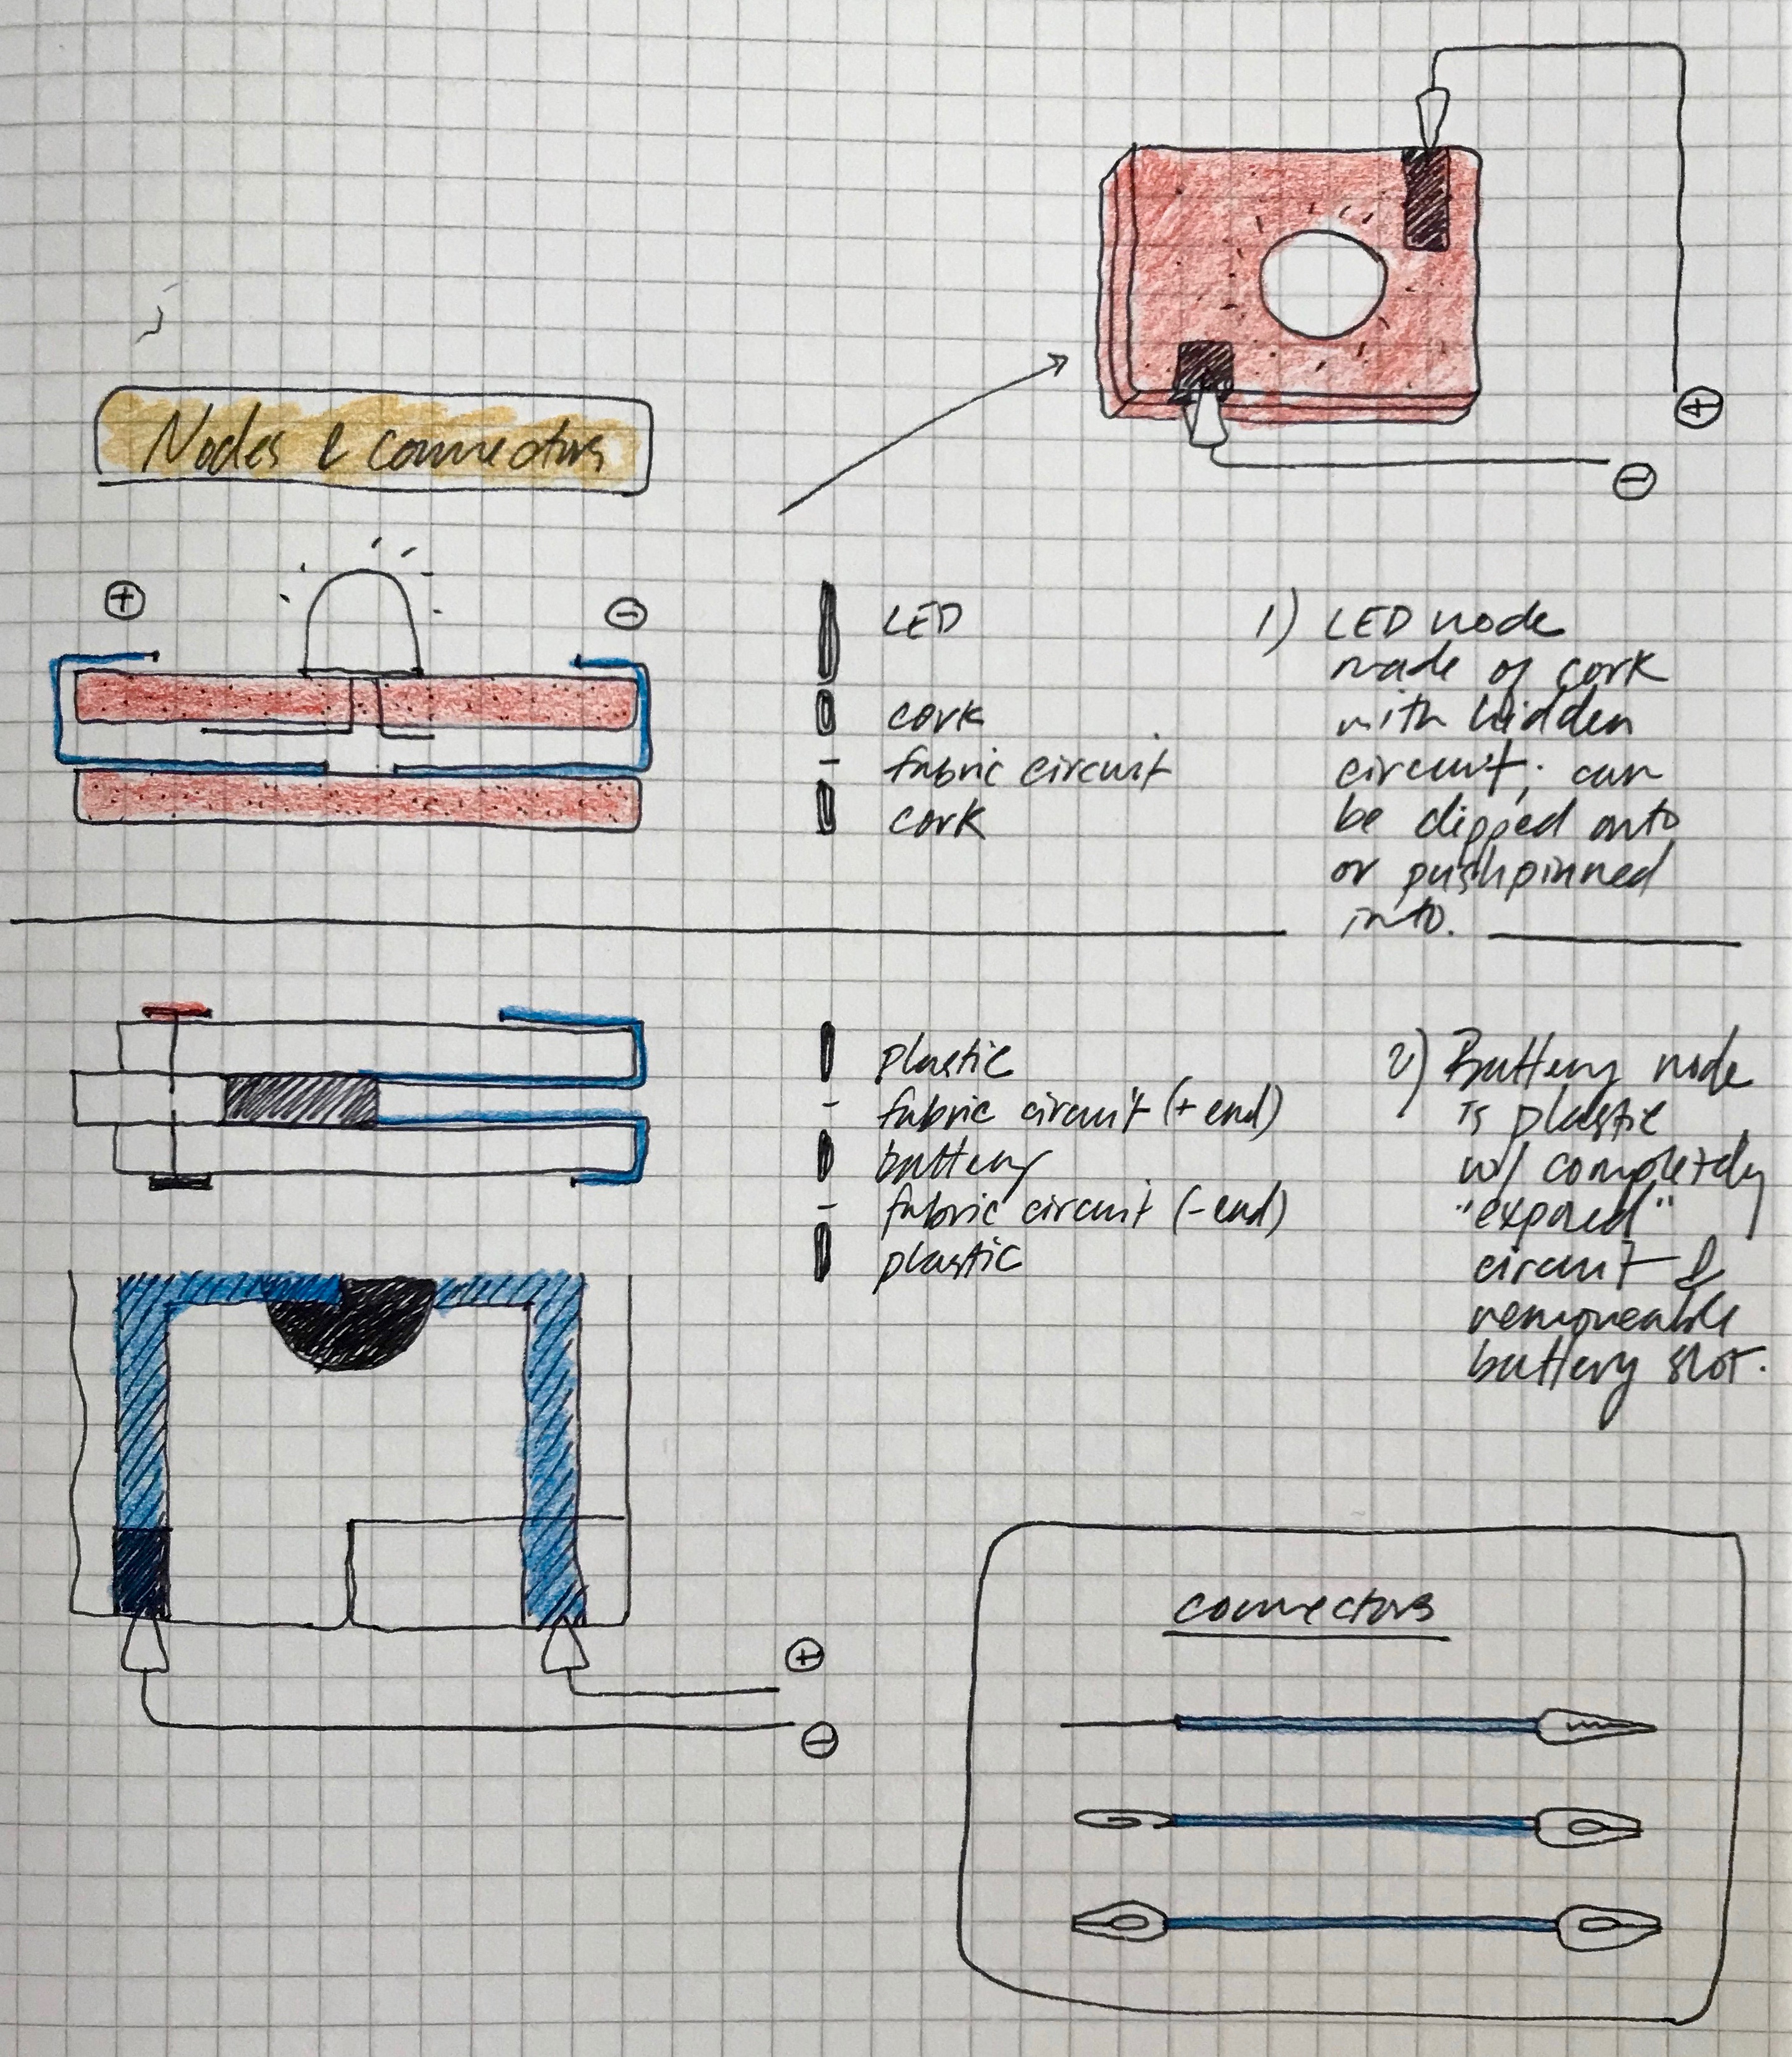 Nodes & connectors
+
-
+
-
LED
cork
- fabric circuit
cork
1) LED node
made of cork
with hidden
circuit; can
be clipped onto
or pushpinned
into.
plastic
- fabric circuit (+ end)
battery
- fabric circuit (- end)
plastic
2) Battery node
is plastic
w/ completely
"exposed"
circuit &
removeable
battery slot.
+
-
connectors